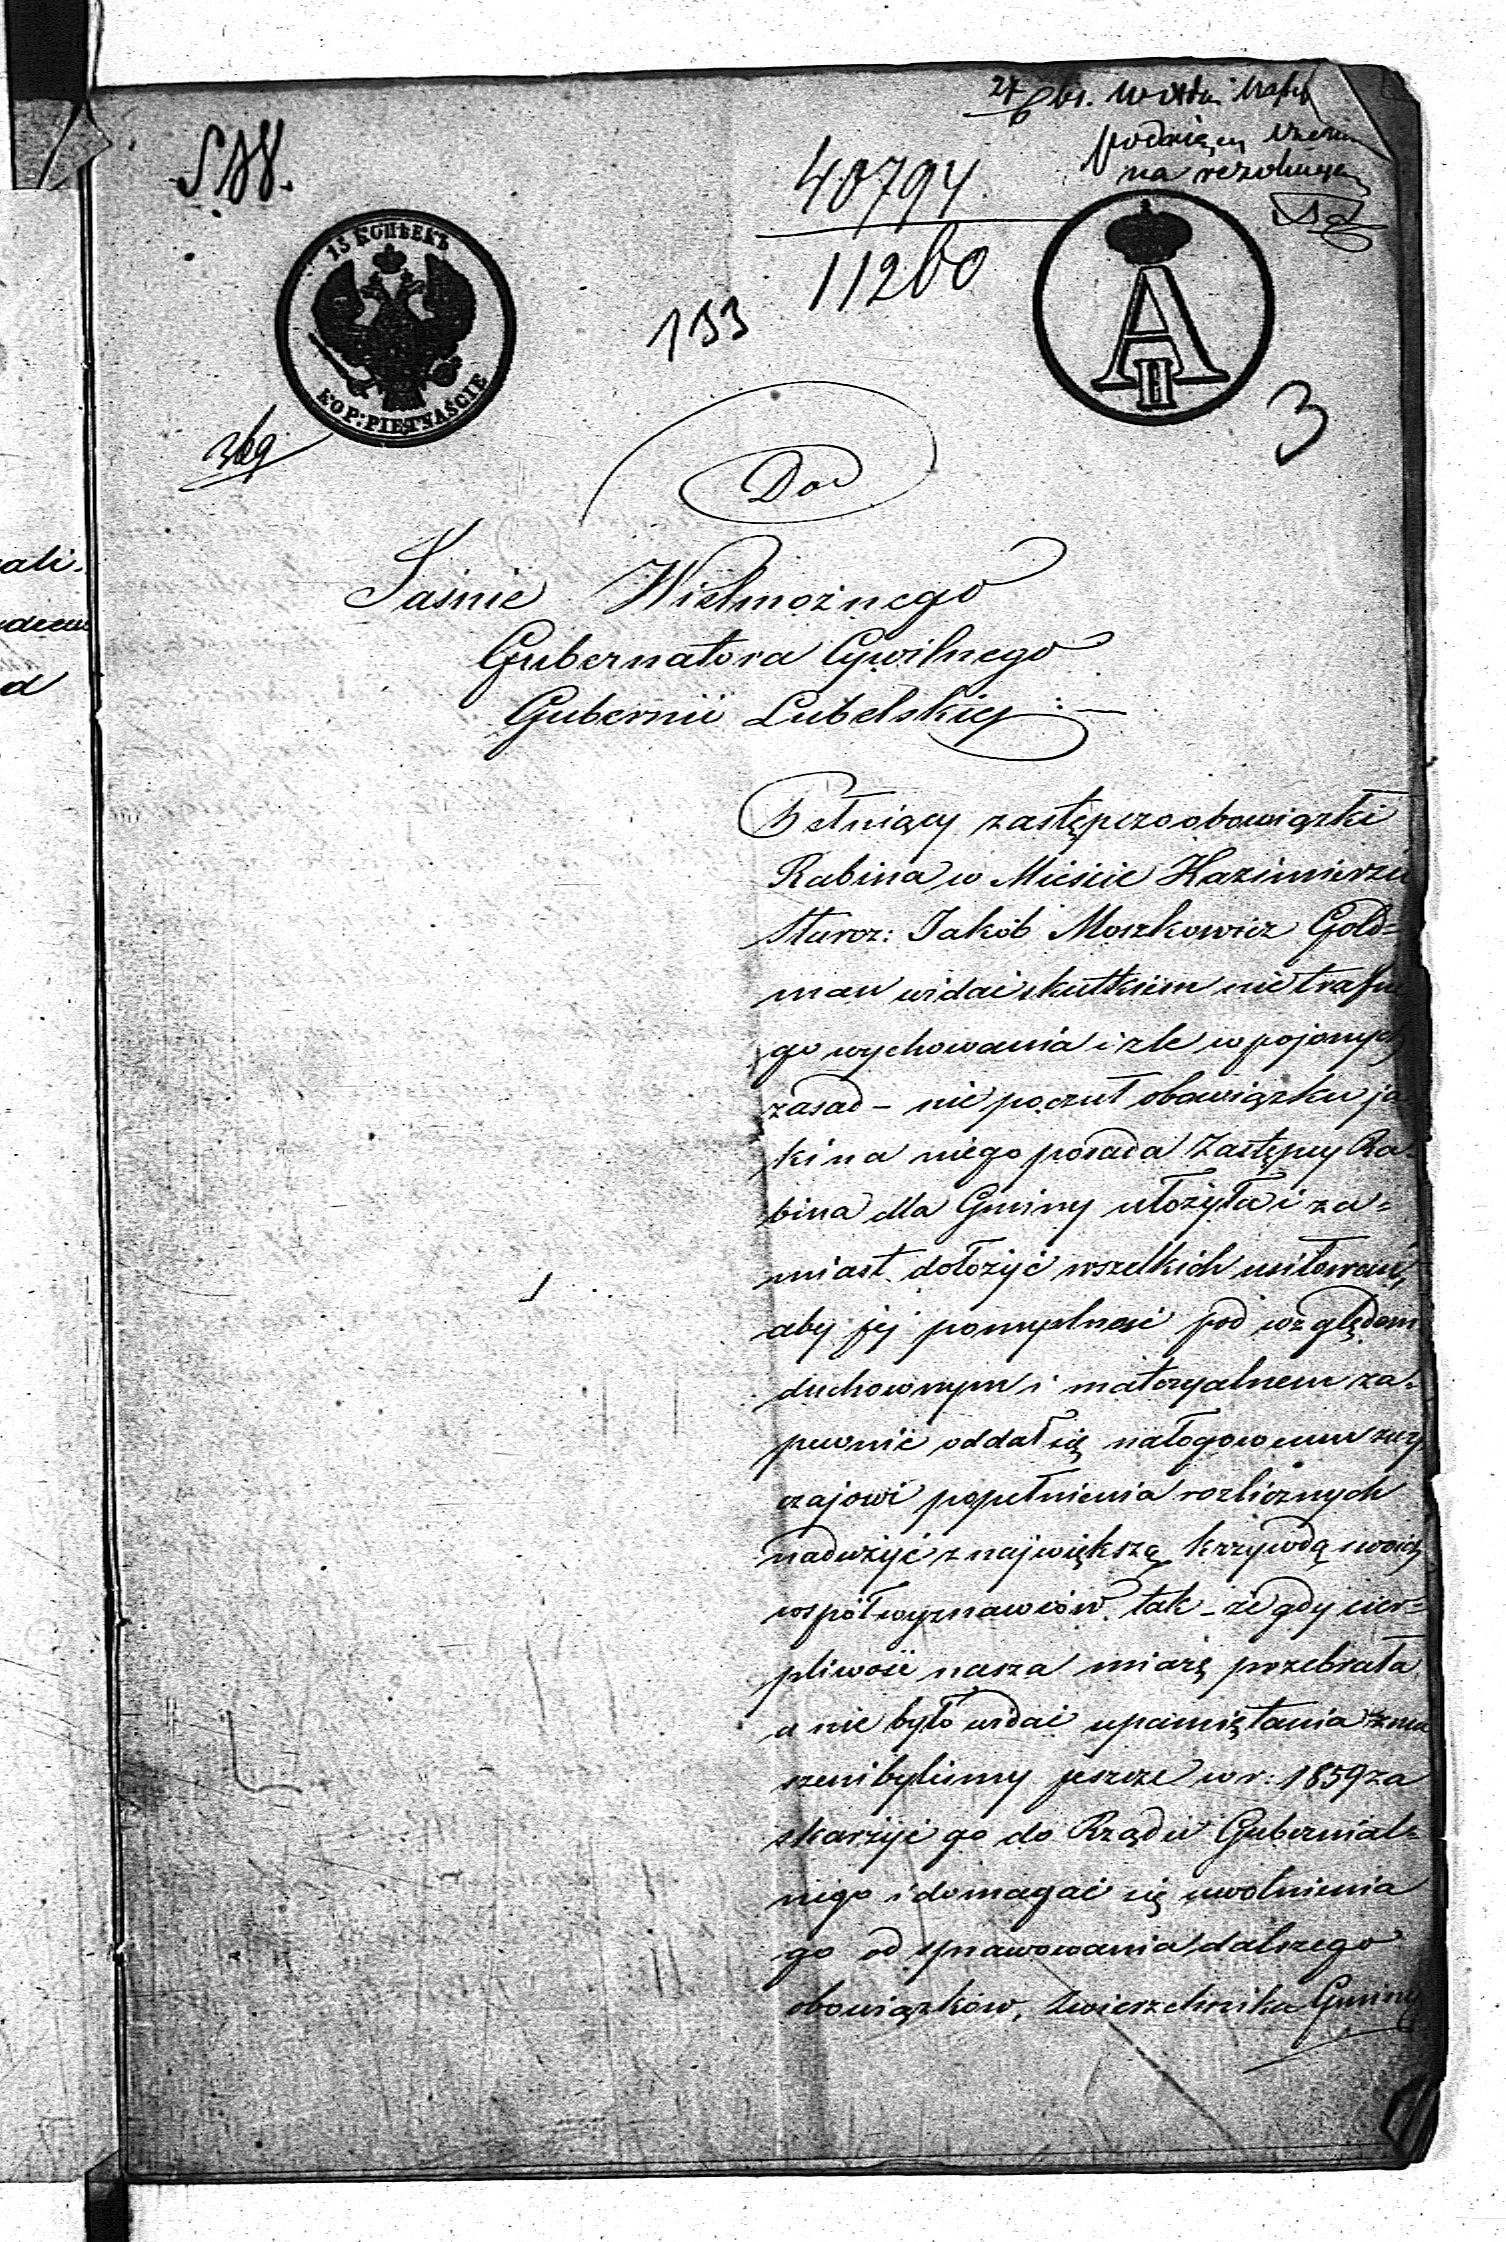 40794
11260
133
na rezolucyą
15 КОПѢЕКЪ
KOP: PIĘTNAŚCIE
A II
3
369
Do
Jaśnie Wielmożnego
Gubernatora Cywilnego
Gubernii Lubelskiej :—
Pełniący zastępczo obowiązki
Rabina w Mieście Kazimierzu
Staroz: Jakób Moszkowicz Gold=
man widać skutkiem nie trafne
go wychowania i zle wpojonych
zasad – nie poczuł obowiązku ja
ki na niego posada Zastępcy Ra-
bina dla Gminy włożyła i za=
miast dołożyć wszelkich usiłowań,
aby jej pomyślność pod względem
duchownym i materyalnem za-
pewnić oddał się nałogowemu zwy
czajowi popełnienia rozlicznych
nadużyć z największą krzywdą swoich
współwyznawców tak – że gdy cier=
pliwość nasza miarę przebrała
a nie było widać upamiętania zmu
szeni byliśmy jeszcze w r: 1859 za
skarżyć go do Rządu Gubernial=
nego i domagać się uwolnienia
go od sprawowania dalszego
obowiązków, Zwierzchnika Gminy